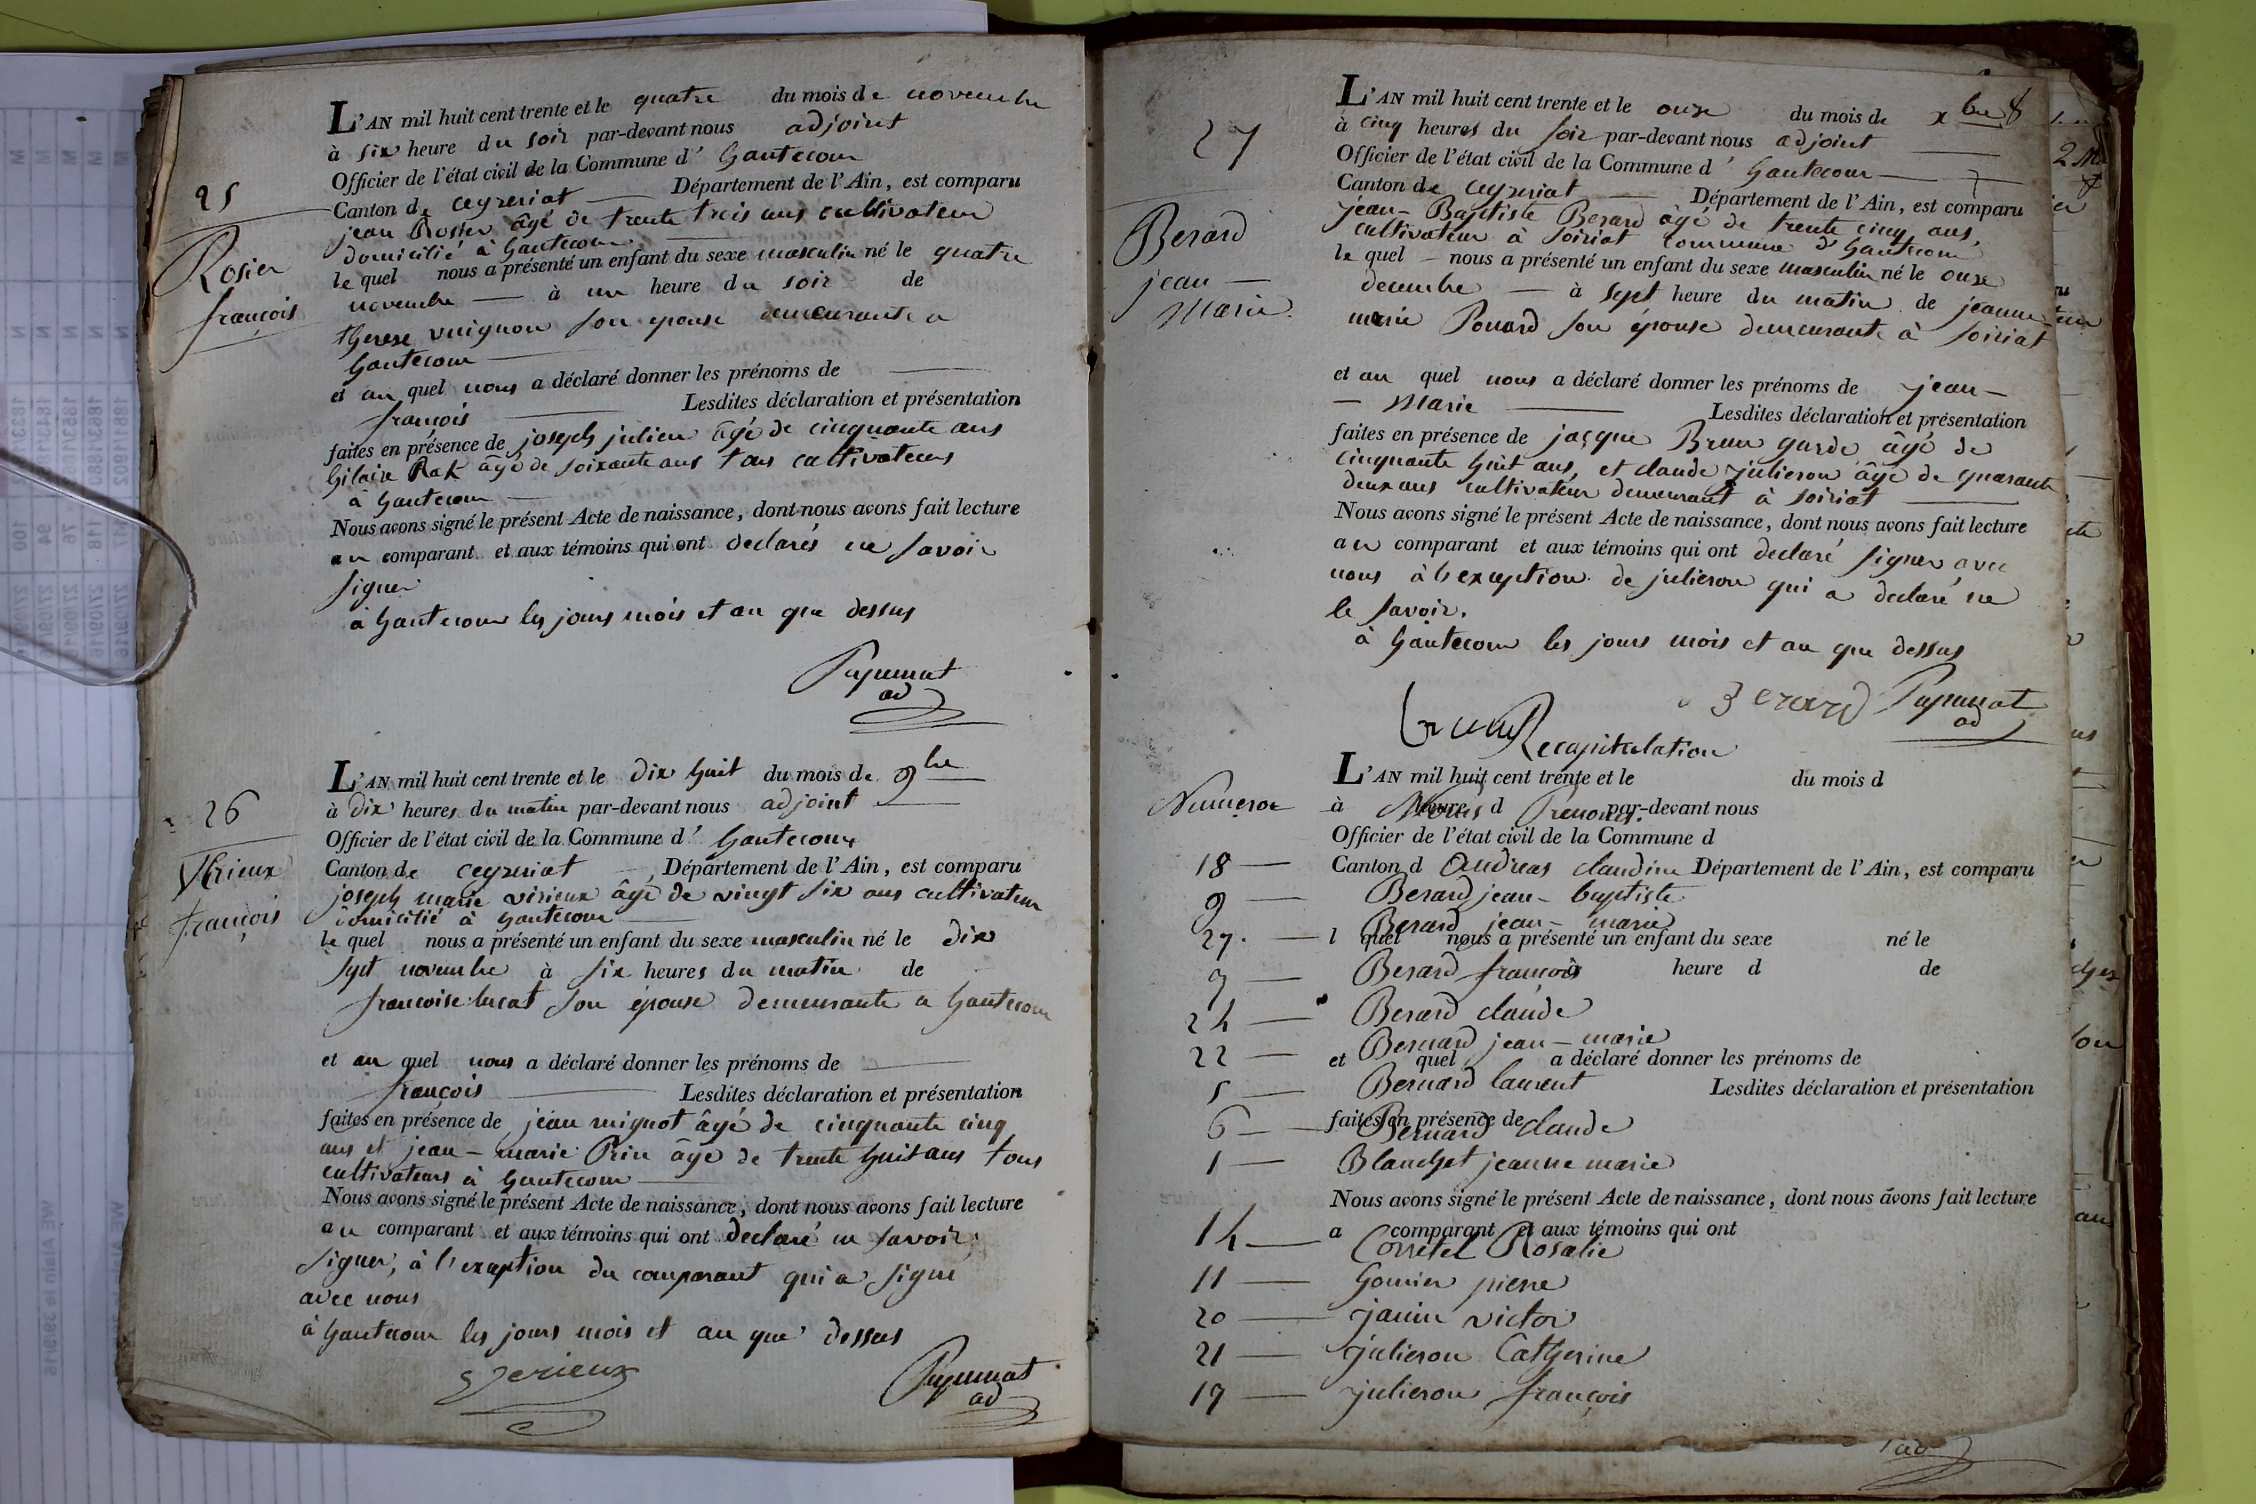 L'AN mil huit cent trente et le quatre du mois de novembre
à six heure du soir par-devant nous adjoint
Officier de l'état civil de la Commune d' hautecour
25
Canton de ceyzeriat Département de l'Ain, est comparu
jean Rosier âgé de trente trois ans cultivateur
domicilié à hautecour
Rosier
françois
le quel nous a présenté un enfant du sexe masculin né le quatre
novembre à une heure du soir de
therese vuignon son epouse demeurante a
hautecour
et au quel nous a déclaré donner les prénoms de
françois Lesdites déclaration et présentation
faites en présence de joseph julien âgé de cinquante ans
hilaire Rak âgé de soixante ans tous cultivateurs
à hautecour
Nous avons signé le présent Acte de naissance, dont nous avons fait lecture
au comparant et aux témoins qui ont declarés ne savoir
signer
à hautecour les jours mois et an que dessus
ad
L'AN mil huit cent trente et le dix huit du mois de 9bre
26
à dix heures du matin par-devant nous adjoint
Officier de l'état civil de la Commune d' hautecour
Canton de ceyzeriat Département de l'Ain, est comparu
joseph marie virieux âgé de vingt six ans cultivateur
domicilié à hautecour
françois
le quel nous a présenté un enfant du sexe masculin né le dix
sept novembre à six heures du matin de
francoise lucat son épouse demeurante a hautecour
et au quel nous a déclaré donner les prénoms de
françois Lesdites déclaration et présentation
faites en présence de jean mignot âgé de cinquante cinq
ans et jean-marie Prin âgé de trente huit ans tous
cultivateurs à hautecour
Nous avons signé le présent Acte de naissance, dont nous avons fait lecture
au comparant et aux témoins qui ont declaré ne savoir
signer, à l'exception du comparant qui a signé
avec nous
à hautecour les jours mois et an que dessus
ad
L'AN mil huit cent trente et le onze du mois de xbre
27
à cinq heures du soir par-devant nous adjoint
Officier de l'état civil de la Commune d' hautecour
Canton de ceyzeriat Département de l'Ain, est comparu
jean-Baptiste Berard âgé de trente cinq ans,
cultivateur à soiriat commune d'hautecour
Berard
jean-
Marie
le quel nous a présenté un enfant du sexe masculin né le onze
decembre à sept heure du matin de jeanne
marie Ponard son épouse demeurante à soiriat
et au quel nous a déclaré donner les prénoms de jean-
Marie Lesdites déclaration et présentation
faites en présence de jacque Brun garde âgé de
cinquante huit ans, et claude julieron âgé de quarante
deux ans cultivateur demeurant à soiriat
Nous avons signé le présent Acte de naissance, dont nous avons fait lecture
au comparant et aux témoins qui ont declaré signer avec
nous à l'exception de julieron qui a declaré ne
le savoir.
à hautecour les jours mois et an que dessus
Berard
ad
Brun
Recapitulation
L'AN mil huit cent trente et le du mois d
Numeros
à heure d par-devant nous
Noms Prenoms.
Officier de l'état civil de la Commune d
Canton d Département de l'Ain, est comparu
18 Andreas claudine
9 Berard jean-baptiste
27. Berard jean-marie
l quel nous a présenté un enfant du sexe né le
à heure d de
Berard françois
24 Berard claude
22 Bernard jean-marie
et quel a déclaré donner les prénoms de
5 Bernard laurent
Lesdites déclaration et présentation
faites en présence de
6 Bernard claude
1 Blanchet jeanne marie
Nous avons signé le présent Acte de naissance, dont nous avons fait lecture
a comparant et aux témoins qui ont
14 Corretel Rosalie
11 Gonin pierre
20 janin victor
21 julieron Catherine
17 julieron françois